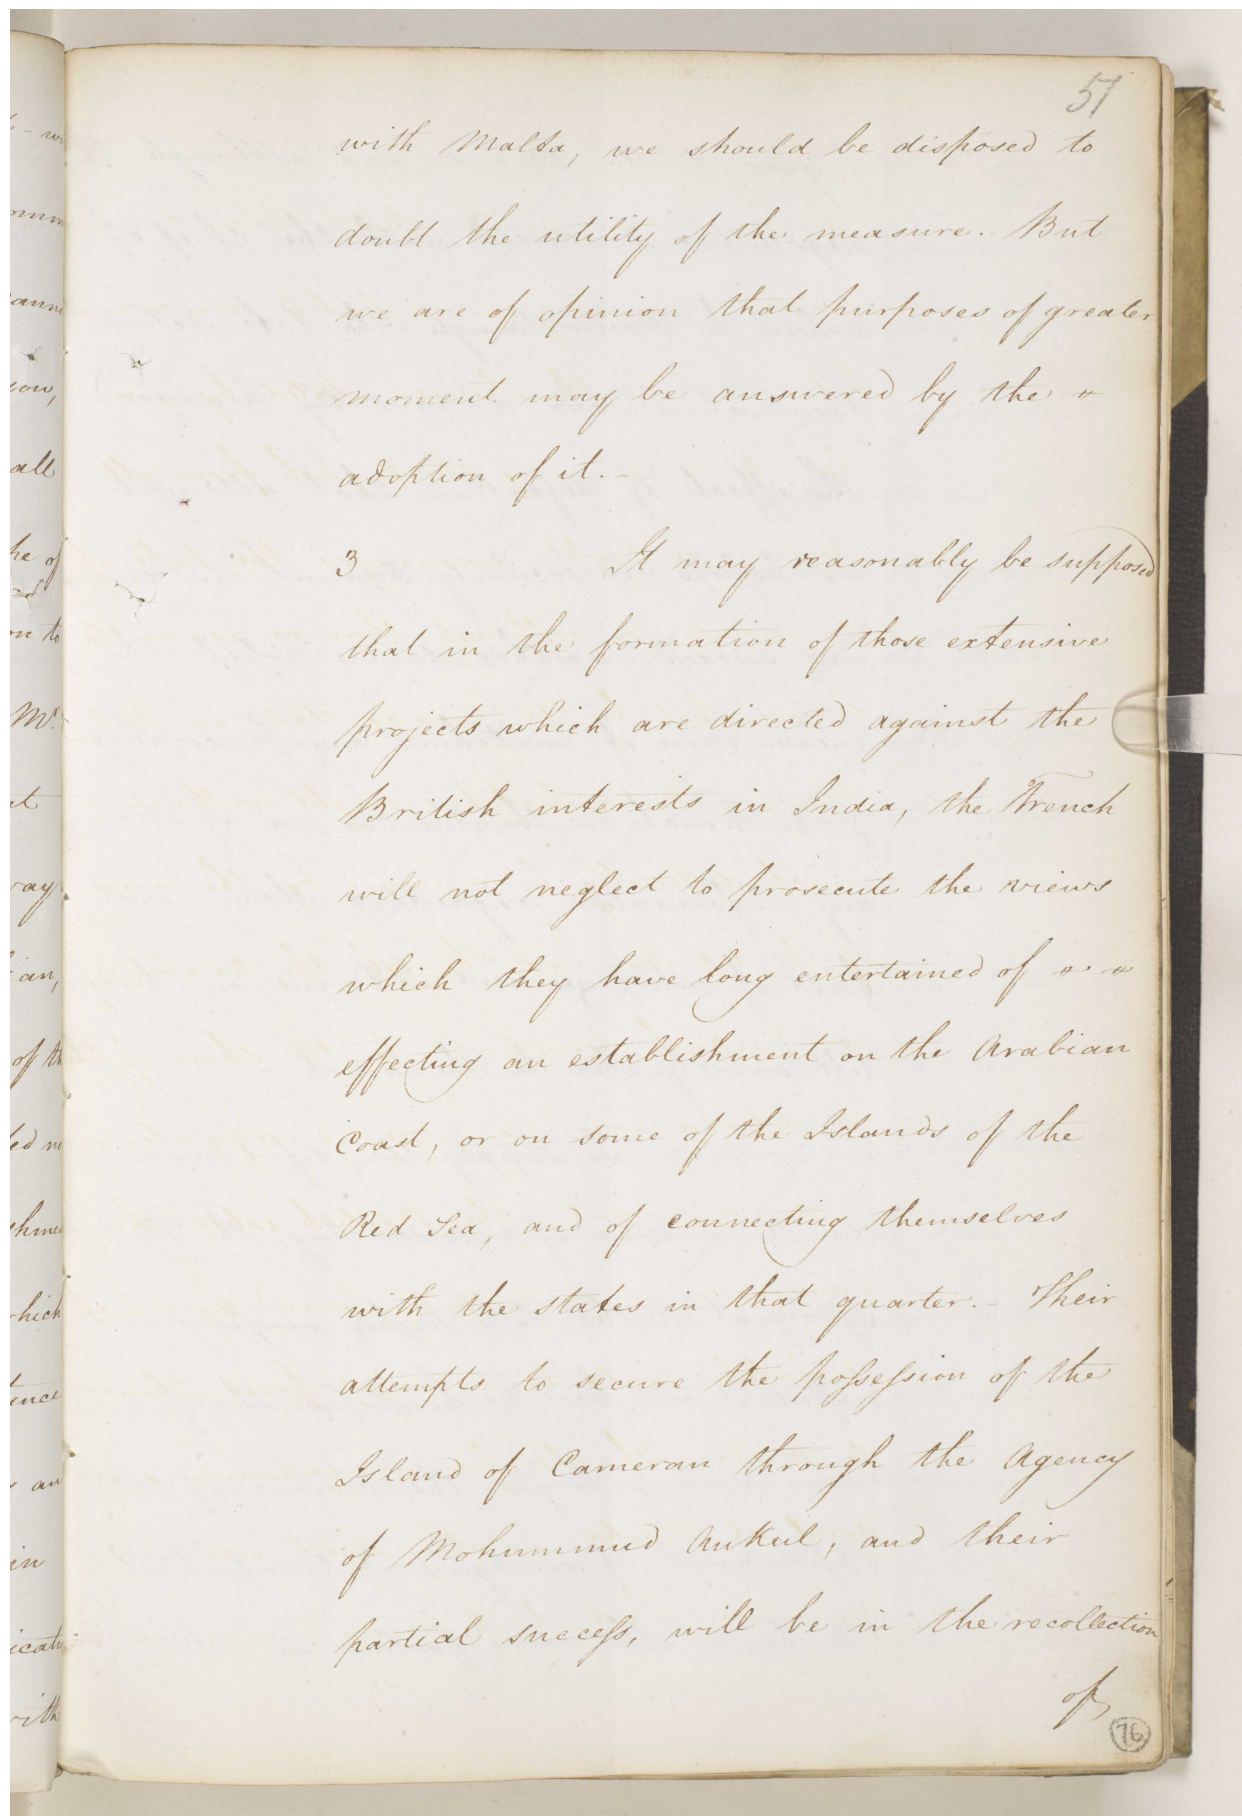 51
with Malta, we should be disposed to
doubt the utility of the measure. But
we are of opinion that purposes of greater
moment may be answered by the "
adoption of it. -
3 It may reasonably be supposed
that in the formation of those extensive
projects which are directed against the
British interests in India, the French
will not neglect to prosecute the views
which they have long entertained of " "
effecting an establishment on the Arabian
Coast, or on some of the Islands of the
Red Sea, and of connecting themselves
with the states in that quarter. - Their
attempts to secure the poſseſsion of the
Island of Cameran through the Agency
of Mohummud Aukul, and their
partial succeſs, will be in the recollection
of
76